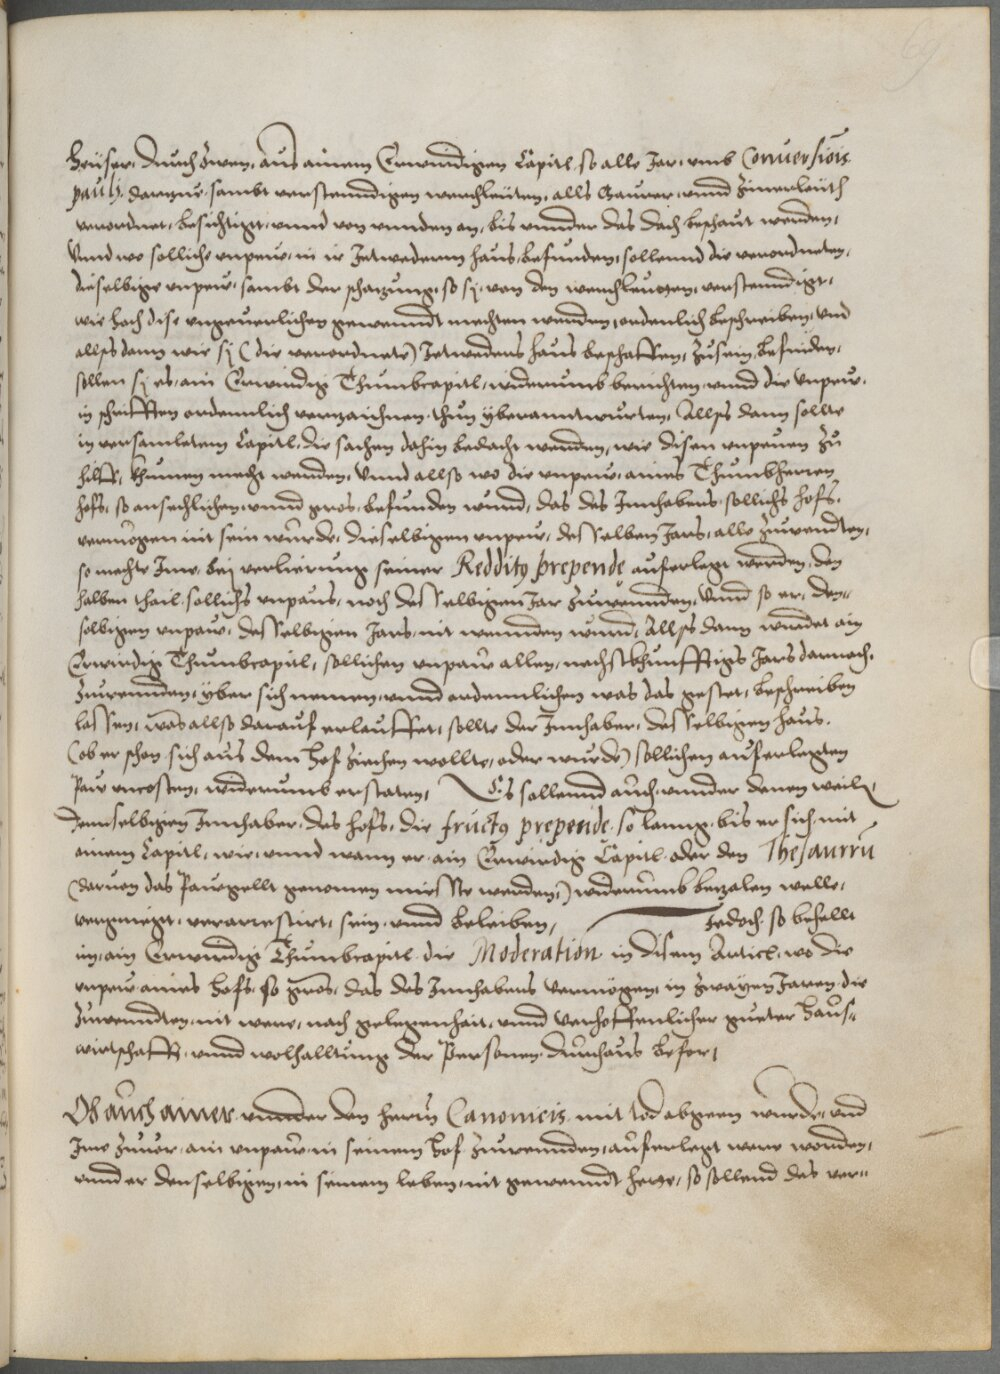 69
heüser, durch zwen, aus ainem Erwirdigen Capitl, so alle Jar, umb Conversiois
pauli, darzue, sambt verstenndigen werchleüten, alls Maurer, unnd Zimerleüth
verordnet, besichtigt, unnd von unnden an, bis unnder das dach beschaut werden,
Unnd wo solliche unpeuw, in ir Jetwederm haus, befunden, sollennd die verordneten,
dieselbige unpeüw, sambt der schatzung, so sy, von den werchleutten, verstenndigt,
wie hoch dise ungeverlichen gewenndt mechten werden, ordenlich beschreiben, und
allß dann wie sy (die verordnete) Jetweders haus beschaffen, zusein, befinden,
sollen sy es, ain Erwirdig Thumbcapitl, widerumb berichten, unnd die unpeuw,
in schrifften ordennlich verzaichnen, thun yberanntwurten, Allß dann sollte
in versamletem Capitl, die sachen dahin bedacht werden, wie disen unpeuen zu
hilff, khumen mecht werden, Unnd allso wo die unpeuw, aines Thumbherren
hofs, so ansechlichen, unnd gros, befunden wurd, das des Innhabers, sollichs hofs,
vermögen nit sein würde, dieselbigen unpeuw, desselben Jars, alle zuwendten,
so mechte Ime, bei verlierung seiner Redditg prepende auferlegt werden, den
halben thail, sollichs unpaus, noch desselbigen Jar zuwennden, Unnd so er, den-
selbigen unpauw, desselbigen Jars, nit wennden wurd, Allß dann wurdet ain
Erwirdig Thumbcapitl, sollichen unpauw allen, nechstkhunfftigs Jars darnach,
zuwennden, yber sich nemen, unnd ordennlichen was das gestet, beschreiben
lassen, was allso darauf erlauffet, sollte der Innhaber, desselbigen haus,
(ob er schon sich aus dem hof ziechen wollte, oder wurde) sollichen auferlegten
Pauw uncosten, widerumb erstaten, Es sollennd auch, unnder denen weiln,
demselbigen Innhaber, des hofs, die fructg prepende, so lanng, bis er sich, mit
ainem Capitl, wie, unnd wann er, ain Erwirdig Capitl, oder den Thesaurrū
(darvon das Paugellt genomen müesste werden,) widerumb bezalen welle,
vergnüegt, verarrestiert, sein, unnd beleiben, Jedoch, so behellt
im, ain Erwirdig Thumbcapitl, die Moderation, in disem Articl, wo die
unpeuw aines hofs, so gros, das des Innhabers vermögen, in zwayen Jaren, die
zuwendten, nit were, nach gelegenheit, unnd verhoffenlicher gueter haus-
wirtschafft, unnd wolhalltung der Personen, durchaus befor,
Ob auch ainer unnder den herrn Canonicis, mit tod abgeen wurde, und
Ime zuvor, ain unpauw, in seinem hof, zuwennden, auferlegt were worden,
unnd er denselbigen, in seinem leben, nit gewenndt hette, so sollend des ver-